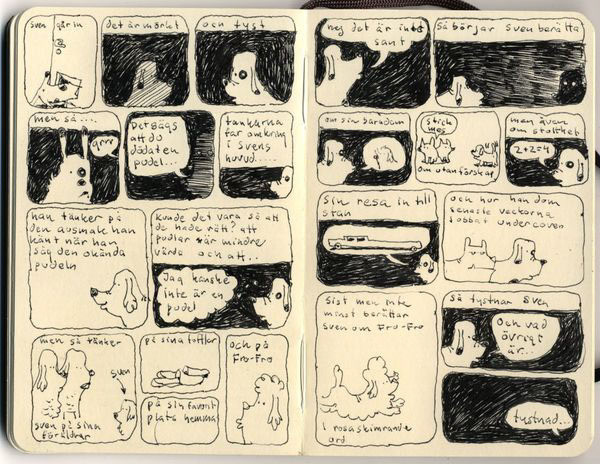 sven går in
det är mörkt
och tyst
men så...
grrr
Det sägs
att du
dödat en
pudel...
tankarna
far omkring
i svens
huvud....
han tänker på
den avsmak han
känt när han
såg den okända
pudeln
kunde det vara så att
de hade rätt? att
pudlar är mindre
värda och att...
Jag kanske
inte är en
pudel
men så tänker
sven
sven på sina
föräldrar
på sina tofflor
på sin favorit
plats hemma
och på
Fro-Fro
nej det är inte
sant
Så börjar sven berätta
om sin barndom
stick
mes
om utanförskap
men även
om stolthet
2+2=4
sin resa in till
stan
och hur han dom
senaste veckorna
jobbat undercover
sist men inte
minst berättar
sven om Fro-Fro
i rosaskimrande
ord
Så tystnar Sven
Och vad
övrigt
är...
tystnad...